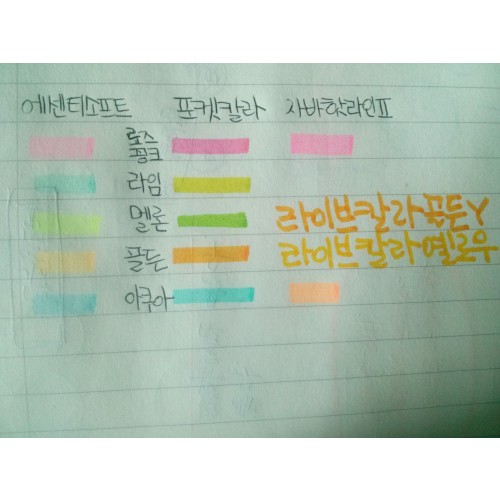 에센티소프트 포켓칼라 자바핫라인Ⅱ
로즈
핑크
라임
멜론 라이브칼라골든Y
골든 라이브칼라옐로우
아쿠아